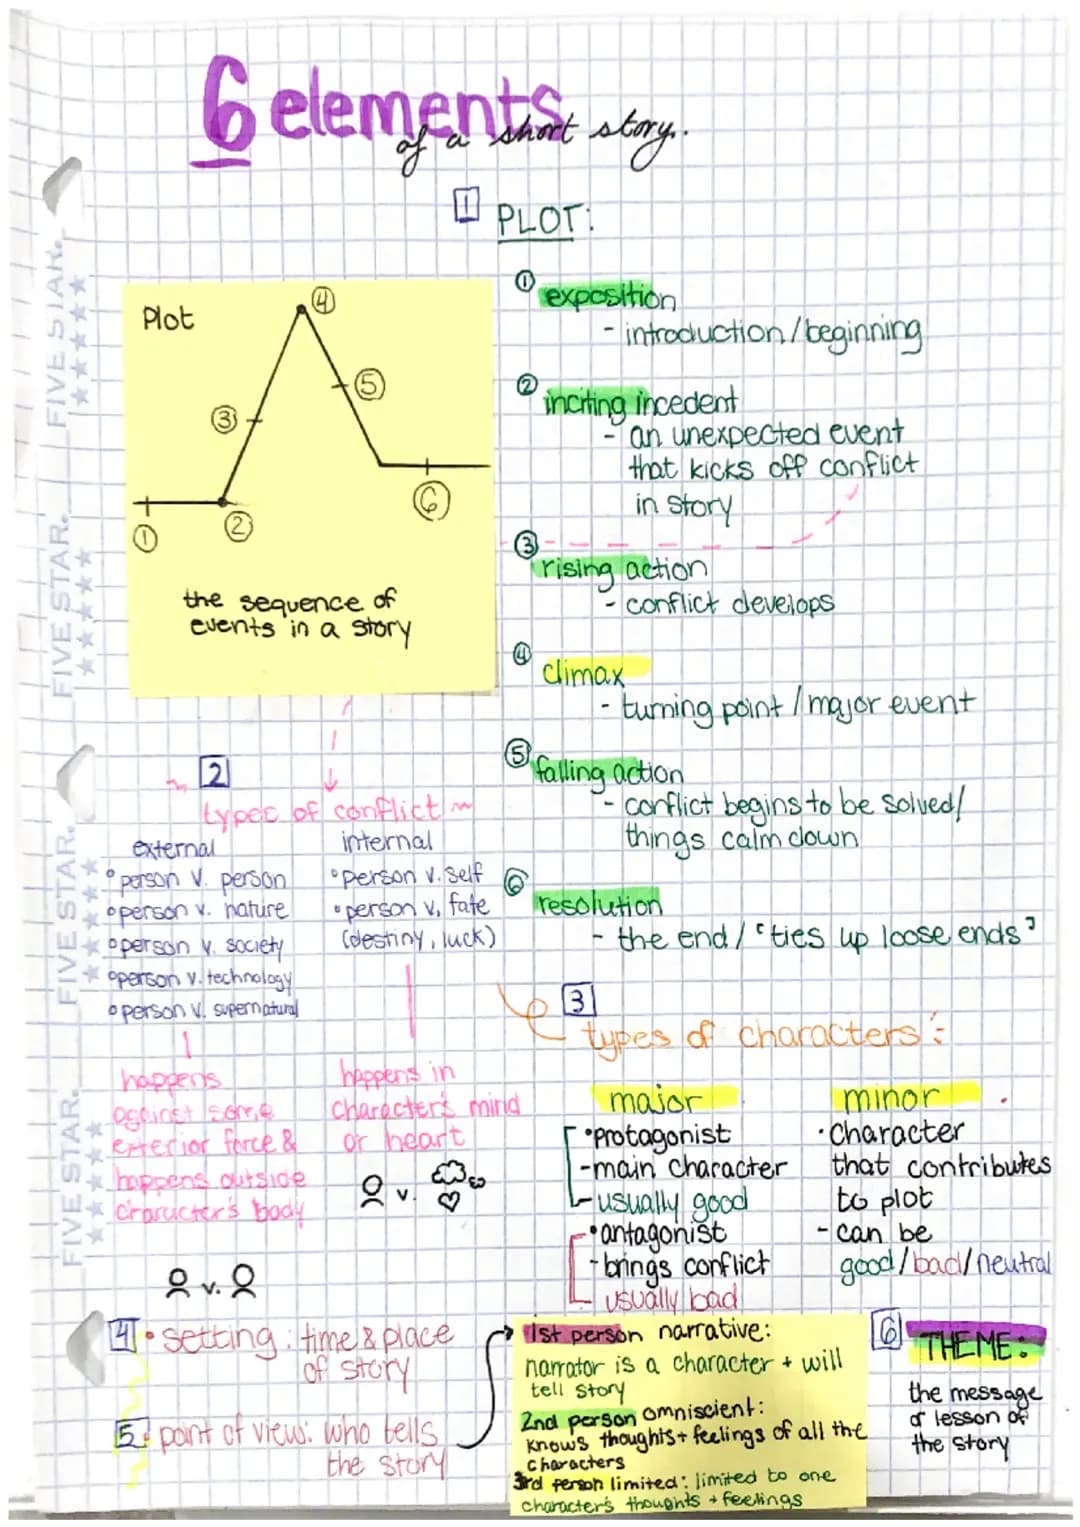 6 elements
of a short story.
1 PLOT:
Plot
1
2
3
4
5
6
the sequence of
events in a story
① exposition
- introduction/beginning
② inciting incedent
- an unexpected event
that kicks off conflict
in story
③ rising action
- conflict develops
④ climax
- turning point / major event
⑤ falling action
- conflict begins to be solved/
things calm down
⑥ resolution
- the end / "ties up loose ends"
2
types of conflict
external
• person v. person
• person v. nature
• person v. society
• person v. technology
• person v. supernatural
happens
against some
exterior force &
happens outside
character's body
v.
internal
• person v. self
• person v. fate
(destiny, luck)
happens in
character's mind
or heart
v.
3
types of characters:
major
• protagonist
- main character
- usually good
• antagonist
- brings conflict
usually bad
minor
• character
that contributes
to plot
- can be
good/bad/neutral
4 • setting: time & place
of story
5 • point of view: who tells
the story
1st person narrative:
narrator is a character + will
tell story
2nd person omniscient:
knows thoughts + feelings of all the
characters
3rd person limited: limited to one
character's thoughts + feelings
6 THEME:
the message
or lesson of
the story
FIVE STAR.
FIVE STAR.
FIVE STAR.
FIVE STAR.